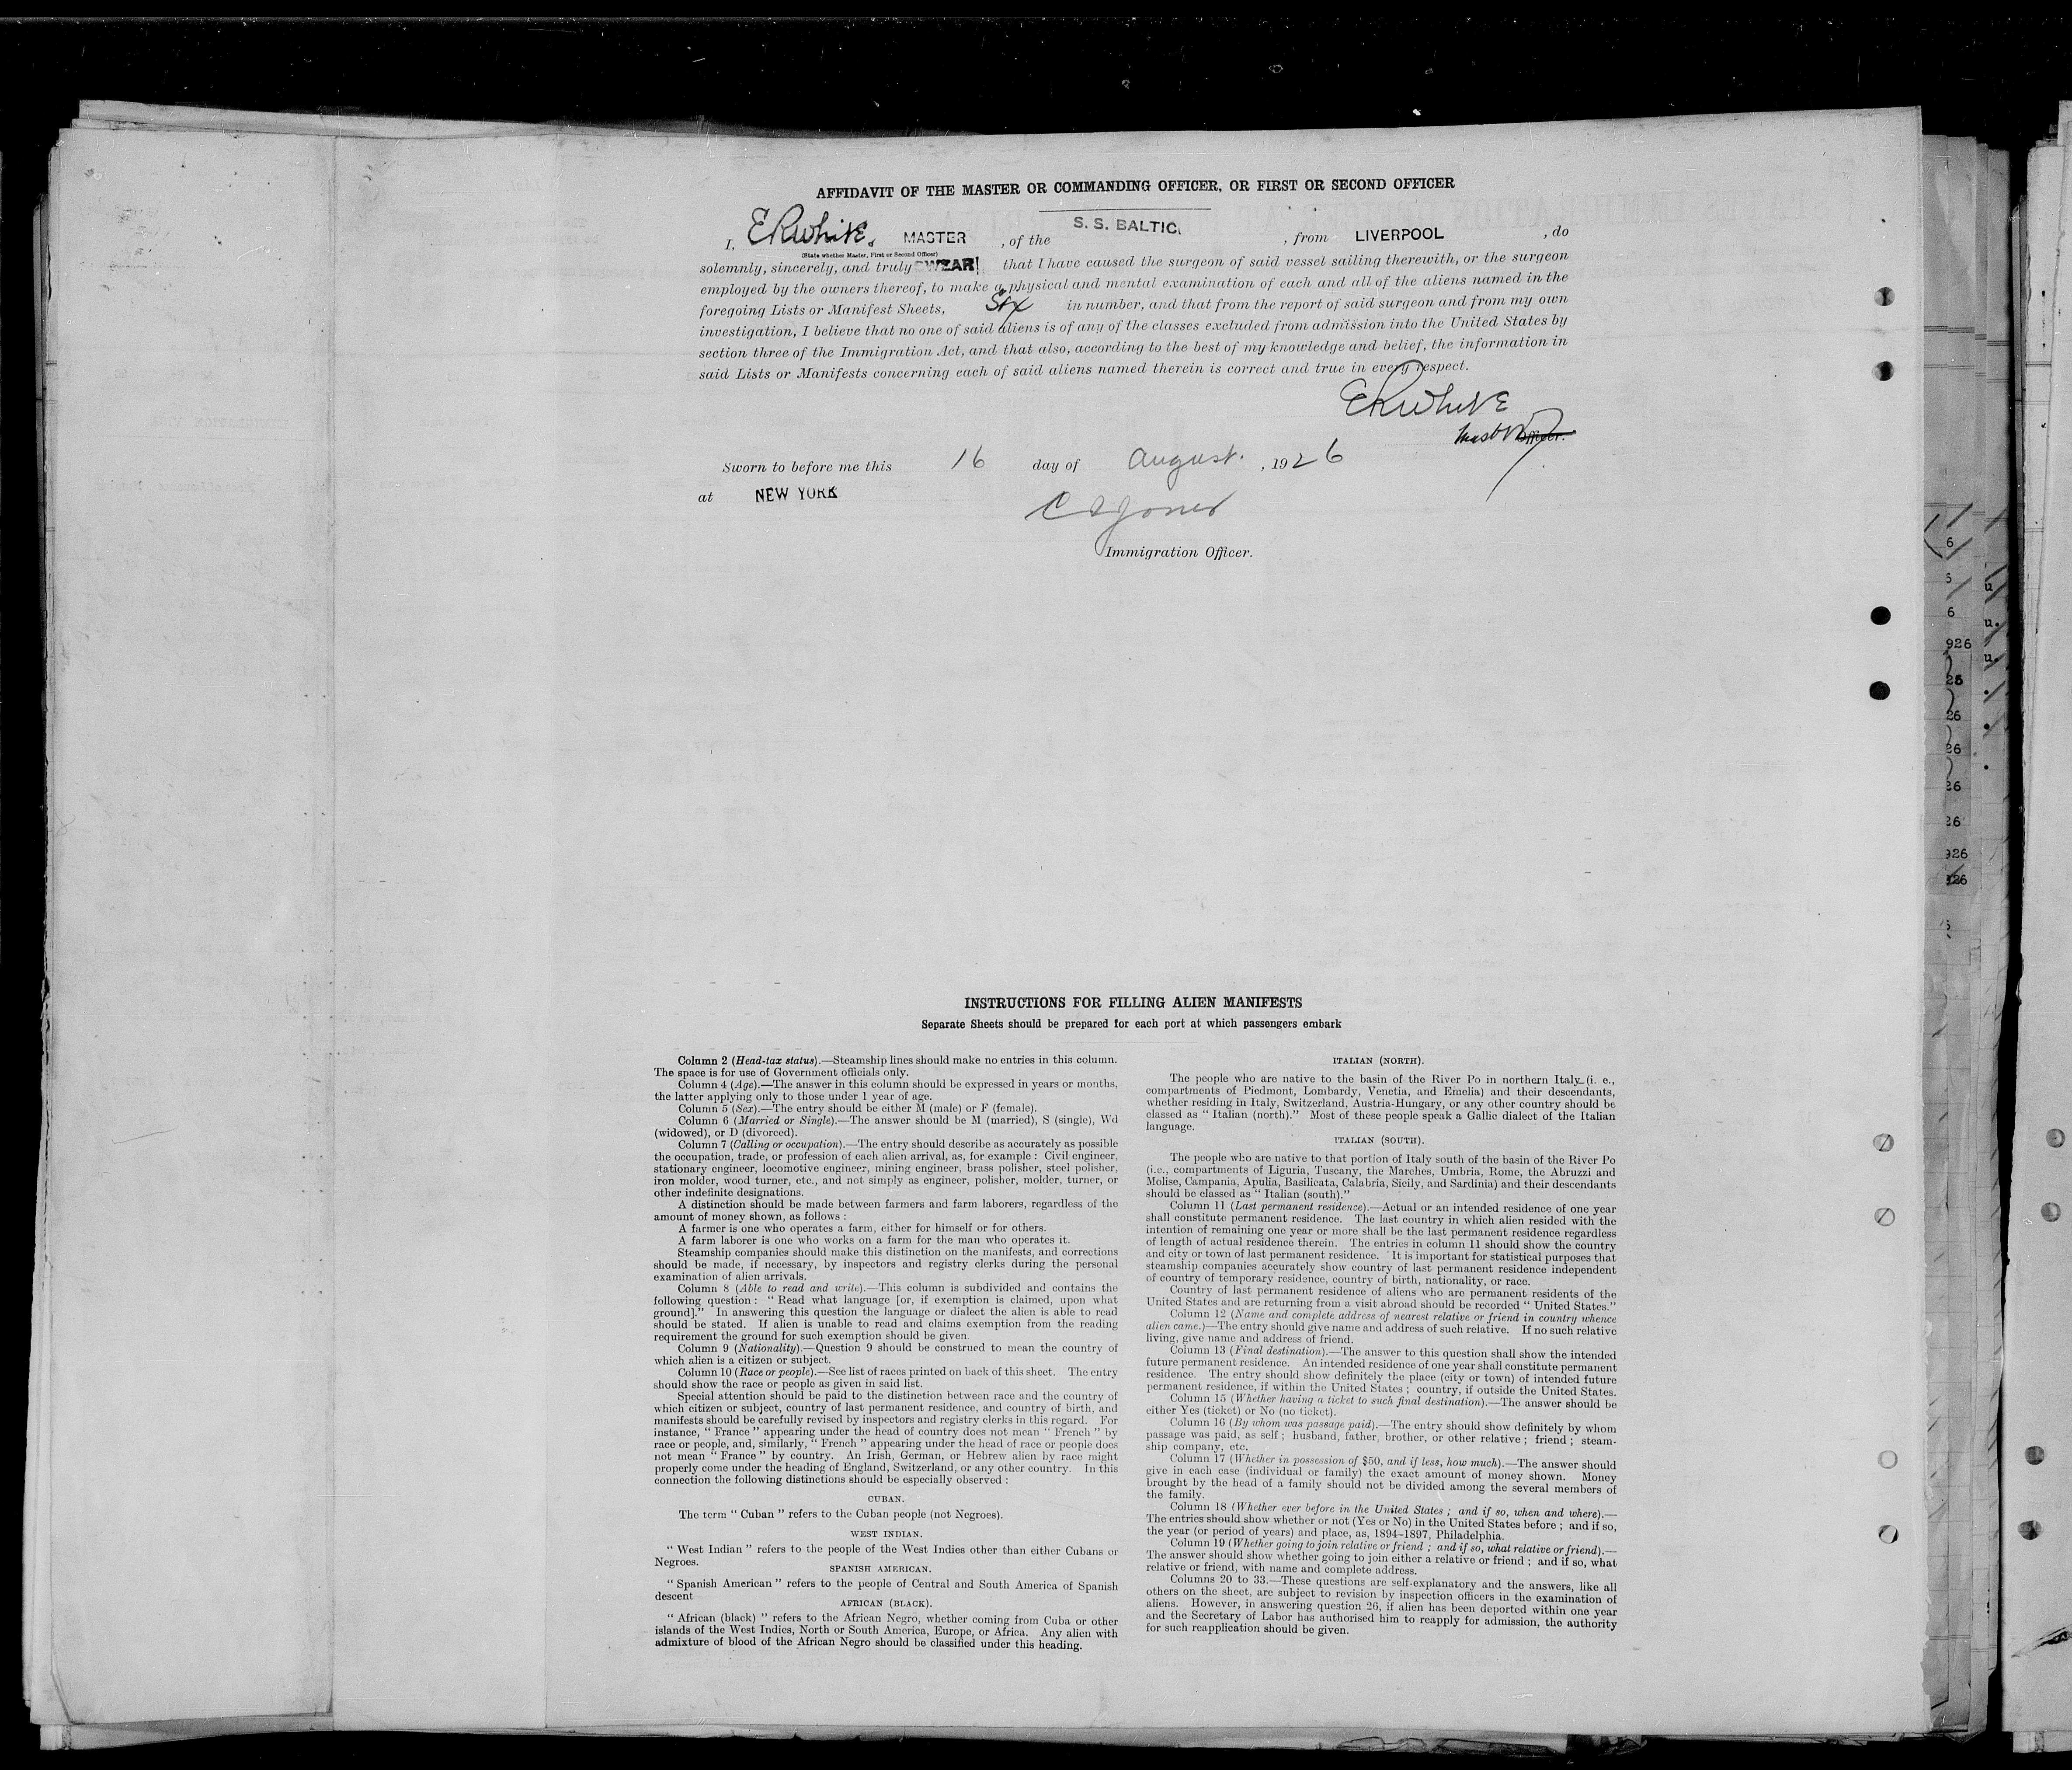 AFFIDAVIT OF THE MASTER OR COMMANDING OFFICER, OR FIRST OR SECOND OFFICER
I, E R White, MASTER, of the S. S. BALTIC, from LIVERPOOL, do
(State whether Master, First or Second Officer)
solemnly, sincerely, and truly SWEAR that I have caused the surgeon of said vessel sailing therewith, or the surgeon
employed by the owners thereof, to make a physical and mental examination of each and all of the aliens named in the
foregoing Lists or Manifest Sheets, Six in number, and that from the report of said surgeon and from my own
investigation, I believe that no one of said aliens is of any of the classes excluded from admission into the United States by
section three of the Immigration Act, and that also, according to the best of my knowledge and belief, the information in
said Lists or Manifests concerning each of said aliens named therein is correct and true in every respect.
E R White
Master Officer.
Sworn to before me this 16 day of August. , 1926
at NEW YORK
Jones
Immigration Officer.
INSTRUCTIONS FOR FILLING ALIEN MANIFESTS
Separate Sheets should be prepared for each port at which passengers embark
Column 2 (Head-tax status).—Steamship lines should make no entries in this column.
The space is for use of Government officials only.
Column 4 (Age).—The answer in this column should be expressed in years or months,
the latter applying only to those under 1 year of age.
Column 5 (Sex).—The entry should be either M (male) or F (female).
Column 6 (Married or Single).—The answer should be M (married), S (single), Wd
(widowed), or D (divorced).
Column 7 (Calling or occupation).—The entry should describe as accurately as possible
the occupation, trade, or profession of each alien arrival, as, for example : Civil engineer,
stationary engineer, locomotive engineer, mining engineer, brass polisher, steel polisher,
iron molder, wood turner, etc., and not simply as engineer, polisher, molder, turner, or
other indefinite designations.
A distinction should be made between farmers and farm laborers, regardless of the
amount of money shown, as follows :
A farmer is one who operates a farm, either for himself or for others.
A farm laborer is one who works on a farm for the man who operates it.
Steamship companies should make this distinction on the manifests, and corrections
should be made, if necessary, by inspectors and registry clerks during the personal
examination of alien arrivals.
Column 8 (Able to read and write).—This column is subdivided and contains the
following question : " Read what language [or, if exemption is claimed, upon what
ground]." In answering this question the language or dialect the alien is able to read
should be stated. If alien is unable to read and claims exemption from the reading
requirement the ground for such exemption should be given.
Column 9 (Nationality).—Question 9 should be construed to mean the country of
which alien is a citizen or subject.
Column 10 (Race or people).—See list of races printed on back of this sheet. The entry
should show the race or people as given in said list.
Special attention should be paid to the distinction between race and the country of
which citizen or subject, country of last permanent residence, and country of birth, and
manifests should be carefully revised by inspectors and registry clerks in this regard. For
instance, " France " appearing under the head of country does not mean " French " by
race or people, and, similarly, " French " appearing under the head of race or people does
not mean " France " by country. An Irish, German, or Hebrew alien by race might
properly come under the heading of England, Switzerland, or any other country. In this
connection the following distinctions should be especially observed :
CUBAN.
The term " Cuban " refers to the Cuban people (not Negroes).
WEST INDIAN.
" West Indian " refers to the people of the West Indies other than either Cubans or
Negroes.
SPANISH AMERICAN.
" Spanish American " refers to the people of Central and South America of Spanish
descent
AFRICAN (BLACK).
" African (black) " refers to the African Negro, whether coming from Cuba or other
islands of the West Indies, North or South America, Europe, or Africa. Any alien with
admixture of blood of the African Negro should be classified under this heading.
ITALIAN (NORTH).
The people who are native to the basin of the River Po in northern Italy (i. e.,
compartments of Piedmont, Lombardy, Venetia, and Emelia) and their descendants,
whether residing in Italy, Switzerland, Austria-Hungary, or any other country should be
classed as " Italian (north)." Most of these people speak a Gallic dialect of the Italian
language.
ITALIAN (SOUTH).
The people who are native to that portion of Italy south of the basin of the River Po
(i.e., compartments of Liguria, Tuscany, the Marches, Umbria, Rome, the Abruzzi and
Molise, Campania, Apulia, Basilicata, Calabria, Sicily, and Sardinia) and their descendants
should be classed as " Italian (south)."
Column 11 (Last permanent residence).—Actual or an intended residence of one year
shall constitute permanent residence. The last country in which alien resided with the
intention of remaining one year or more shall be the last permanent residence regardless
of length of actual residence therein. The entries in column 11 should show the country
and city or town of last permanent residence. It is important for statistical purposes that
steamship companies accurately show country of last permanent residence independent
of country of temporary residence, country of birth, nationality, or race.
Country of last permanent residence of aliens who are permanent residents of the
United States and are returning from a visit abroad should be recorded " United States."
Column 12 (Name and complete address of nearest relative or friend in country whence
alien came.)—The entry should give name and address of such relative. If no such relative
living, give name and address of friend.
Column 13 (Final destination).—The answer to this question shall show the intended
future permanent residence. An intended residence of one year shall constitute permanent
residence. The entry should show definitely the place (city or town) of intended future
permanent residence, if within the United States ; country, if outside the United States.
Column 15 (Whether having a ticket to such final destination).—The answer should be
either Yes (ticket) or No (no ticket).
Column 16 (By whom was passage paid).—The entry should show definitely by whom
passage was paid, as self ; husband, father, brother, or other relative ; friend ; steam-
ship company, etc.
Column 17 (Whether in possession of $50, and if less, how much).—The answer should
give in each case (individual or family) the exact amount of money shown. Money
brought by the head of a family should not be divided among the several members of
the family.
Column 18 (Whether ever before in the United States ; and if so, when and where).—
The entries should show whether or not (Yes or No) in the United States before ; and if so,
the year (or period of years) and place, as, 1894–1897, Philadelphia.
Column 19 (Whether going to join relative or friend ; and if so, what relative or friend).—
The answer should show whether going to join either a relative or friend ; and if so, what
relative or friend, with name and complete address.
Columns 20 to 33.—These questions are self-explanatory and the answers, like all
others on the sheet, are subject to revision by inspection officers in the examination of
aliens. However, in answering question 26, if alien has been deported within one year
and the Secretary of Labor has authorised him to reapply for admission, the authority
for such reapplication should be given.